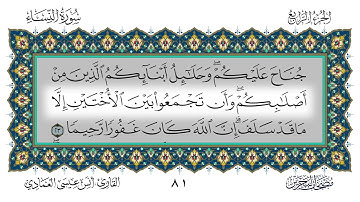 الجزء الرابع
سورة النساء
جُنَاحَ عَلَيْكُمْ وَحَلَٰٓئِلُ أَبْنَآئِكُمُ ٱلَّذِينَ مِنْ
أَصْلَٰبِكُمْ وَأَن تَجْمَعُوا۟ بَيْنَ ٱلْأُخْتَيْنِ إِلَّا
مَا قَدْ سَلَفَ إِنَّ ٱللَّهَ كَانَ غَفُورًا رَّحِيمًا ٢٣
٨١